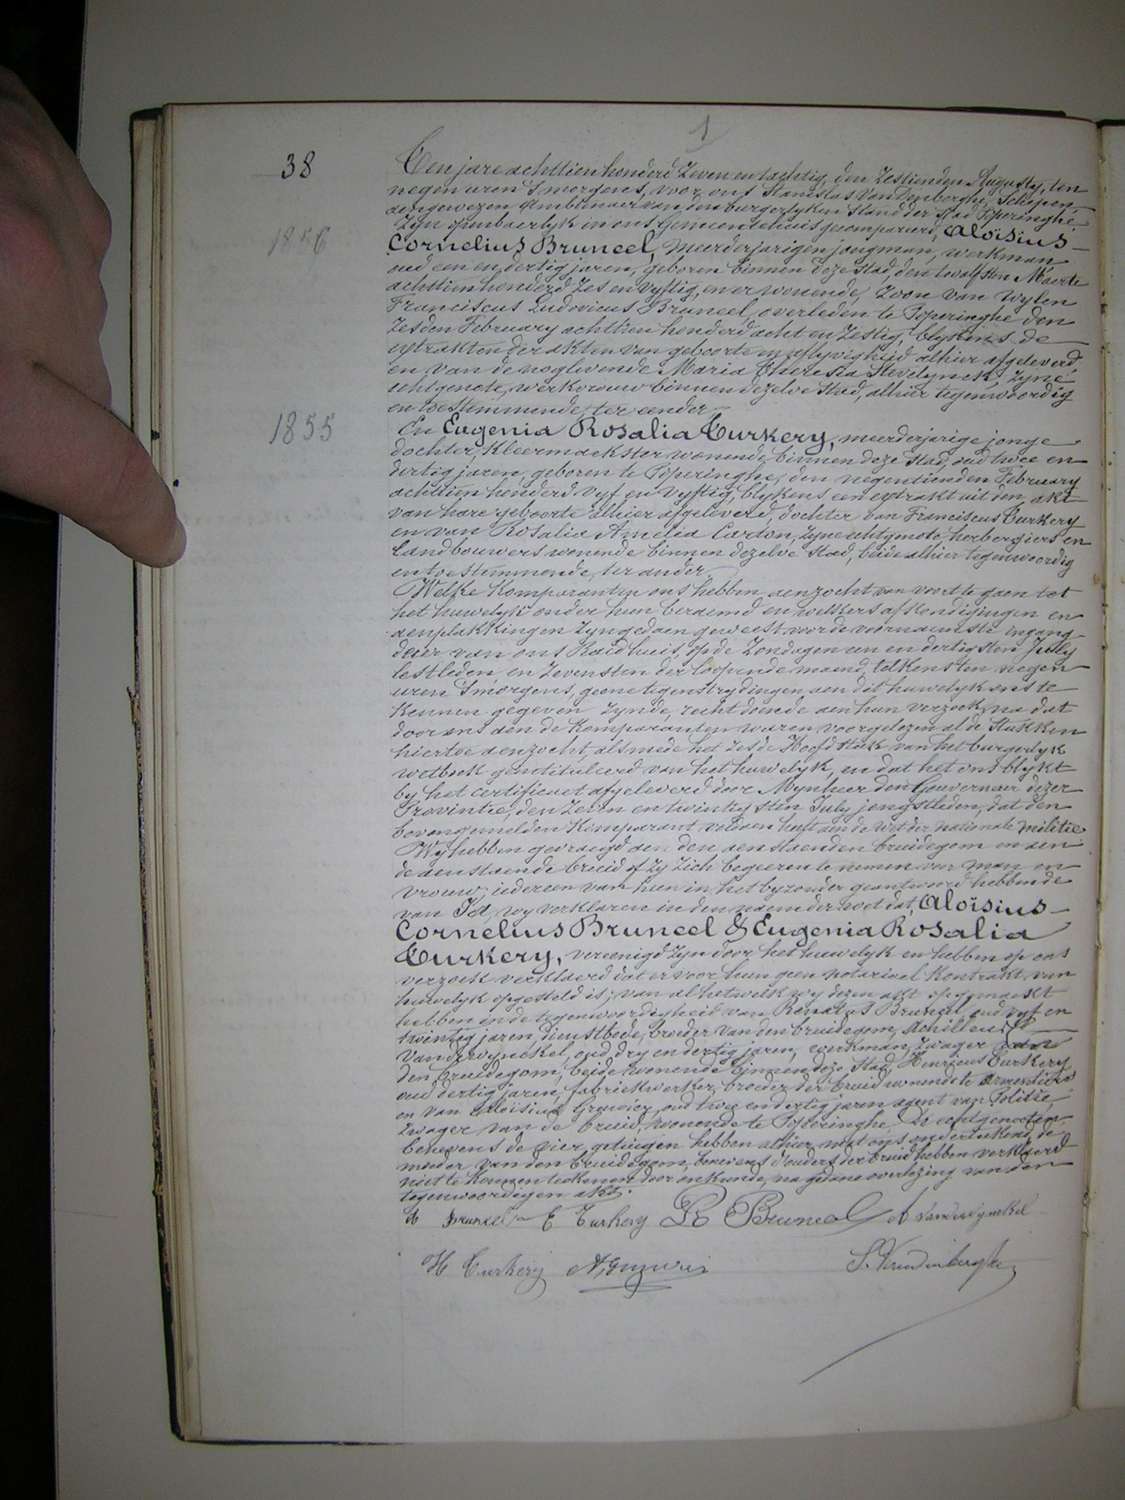 1
38
Ten jare achttien honderd zeven en tachtig, den zestienden Augusty, ten
negen uren 's morgens, voor ons Stanislas Vandenberghe, Schepen
aengewezen Ambtenaer van den burgerlyken stand der stad Poperinghe
zyn openbaerlyk in ons Gemeentehuis gecompareerd, Aloïsius
1856
Cornelius Bruneel, meerderjarigen jongman, werkman
oud een en dertig jaren, geboren binnen deze stad, den twaelfsten Maerte
achttien honderd zes en vyftig, en er wonende, zoon van wylen
Franciscus Ludovicus Bruneel, overleden te Poperinghe den
zesden February achttien honderd acht en zestig, blykens de
extrakten der akten van geboorte en aflyvigheid alhier afgeleverd,
en van de noglevende Maria Theresia Stevelynck, zyne
echtgenote, werkvrouw binnen dezelve stad, alhier tegenwoordig
en toestemmende, ter eender
1855
En Eugenia Rosalia Turkery, meerderjarige jonge
dochter, kleermaekster wonende binnen deze stad, oud twee en
dertig jaren, geboren te Poperinghe, den negentienden February
achttien honderd vyf en vyftig, blykens een extrakt uit den akt
van hare geboorte alhier afgeleverd, dochter van Franciscus Turkery
en van Rosalia Amelia Cardon, zyne echtgenote, herbergiers en
landbouwers wonende binnen dezelve stad, beide alhier tegenwoordig
en toestemmende, ter ander
Welke komparanten ons hebben aenzocht van voort te gaen tot
het huwelyk onder hun beraemd en welkers afkondigingen en
aenplakkingen zyn gedaen geweest voor de voornaemste ingang-
deur van ons Raedhuis, op de Zondagen een en dertigsten July
lestleden, en zevensten der loopende maend, telkens ten negen
uren 's morgens, geene tegenstrydingen aen dit huwelyk ons te
kennen gegeven zynde, recht doende aen hun verzoek, na dat
door ons aen de komparanten waren voorgelezen al de stukken
hiertoe aenzocht, alsmede het zesde Hoofdstuk van het burgerlyk
wetboek geintituleerd van het huwelyk, en dat het ons blykt
by het certificaet afgeleverd door Mynheer den Gouverneur dezer
Provintie, den zeven en twintigsten July jongstleden, dat den
bovengemelden komparant voldaen heeft aen de wet der nationale militie
Wy hebben gevraegd aen den aenstaenden bruidegom en aen
de aenstaende bruid of zy zich begeeren te nemen voor man en
vrouw; iedereen van hun in het byzonder geantwoord hebbende
van Ja, wy verklaren in den naem der wet dat, Aloïsius
Cornelius Bruneel & Eugenia Rosalia
Turkery, vereenigd zyn door het huwelyk en hebben op ons
verzoek verklaerd dat er voor hun geen notarieel kontrakt van
huwelyk opgesteld is; van al hetwelk wy dezen akt opgemaekt
hebben in de tegenwoordigheid van Renatus Bruneel, oud vyf en
twintig jaren, dienstbode, broeder van den bruidegom, Achilleus
Vanderwynckel, oud dry en dertig jaren, werkman, zwager van
den bruidegom, beide wonende binnen deze stad, Henricus Turkery
oud dertig jaren, fabriekwerker, broeder der bruid wonende te Armentiers
en van Aloïsius oud twee en dertig jaren agent van Politie,
zwager van de bruid, wonende te Poperinghe. De echtgenoten
benevens de vier getuigen hebben alhier met ons onderteekend, de
moeder van den bruidegom, benevens d'ouders der bruid hebben verklaerd
niet te konnen teekenen door onkunde, na gedane overlezing van den
tegenwoordigen akt.
A Bruneel E Turkery R Bruneel A Vanderwynckel
H Turkery S. Vandenberghe